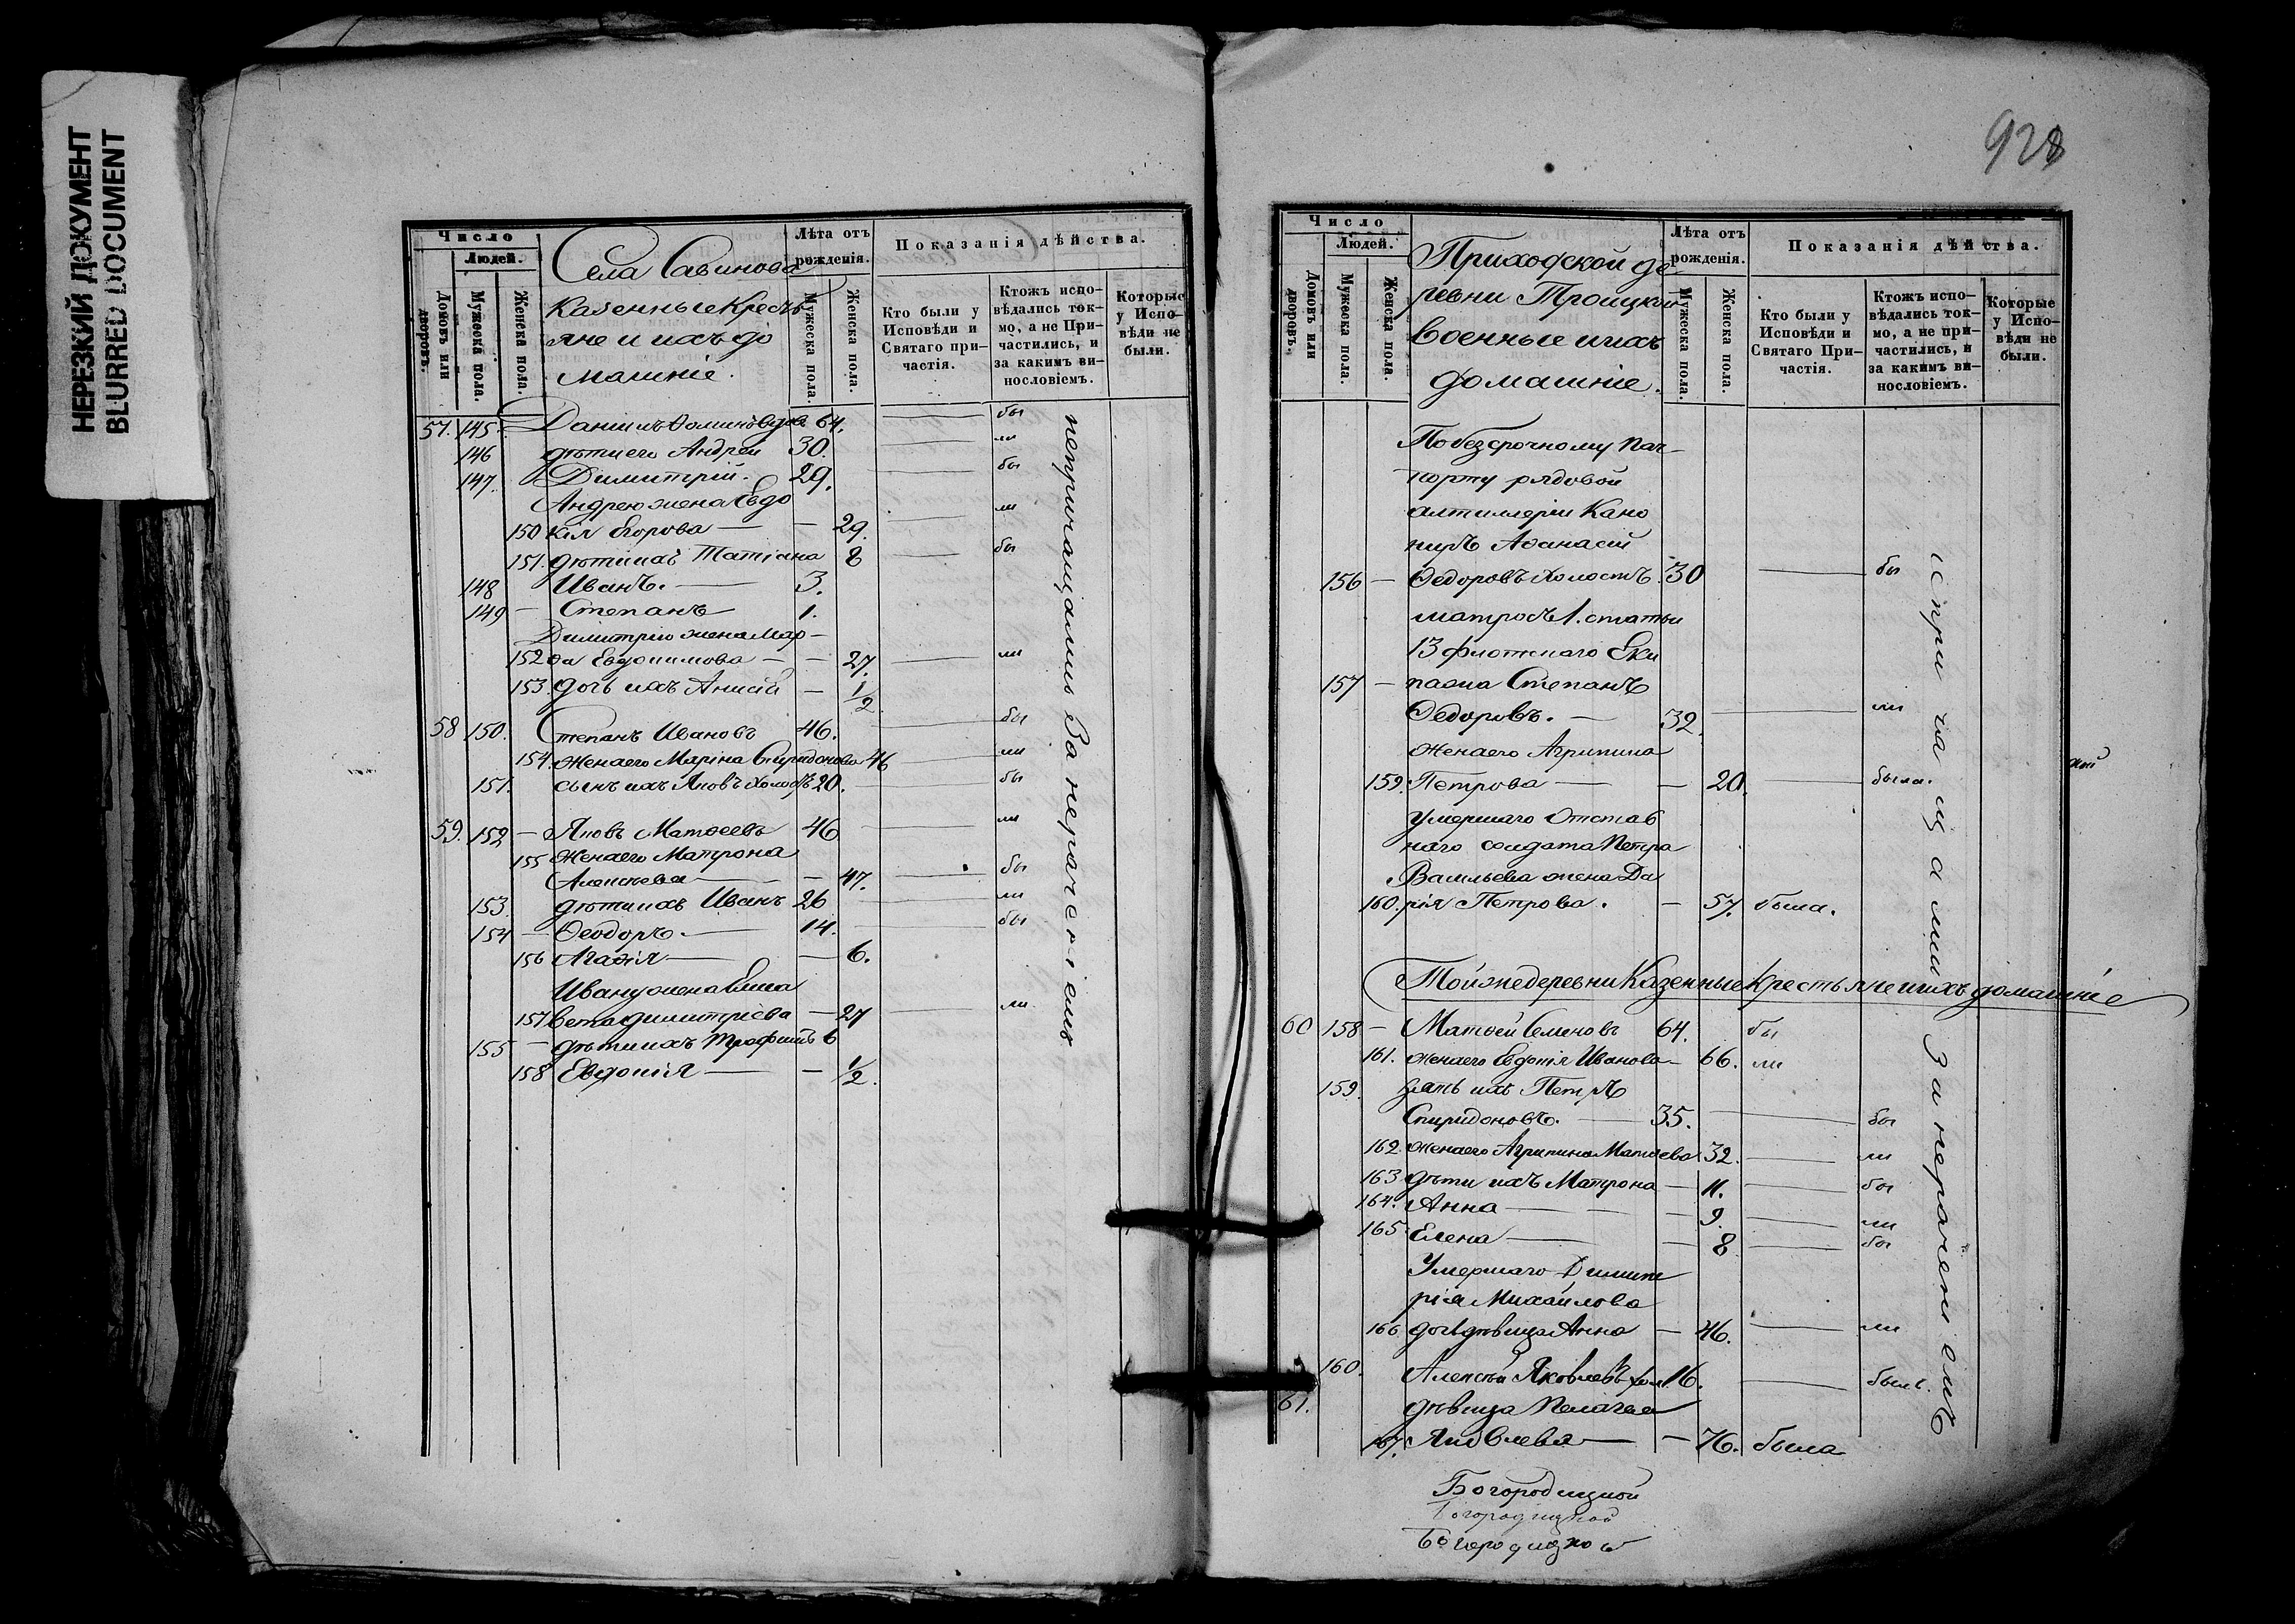 НЕРЕЗКИЙ ДОКУМЕНТ
BLURRED DOCUMENT
Число
Людей.
Домовъ или дворовъ.
Мужеска пола.
Женска пола.
Села Савинова
Казенные Кресть
яне и ихъ до
машніе.
Лѣта отъ рожденія.
Мужеска пола.
Женска пола.
Показанія дѣйства.
Кто были у Исповѣди и Святаго при-
частія.
Ктожъ испо-
вѣдались ток-
мо, а не При-
частились, и
за какимъ ви-
нословіемъ.
Которые
у Испо-
вѣди не
были.
57. 145 Даніилъ вдов 64. бы
146 дѣти его Андрей 30. ли
147. Димитрій. 29. бы
Андрею жена Евдо
150 кія Егорова — — 29. ли
151. дѣти ихъ Татіана 8 бы
148 Иванъ. — 3.
149 — Степанъ 1.
Димитрію жена Мар-
152 ѳа Евдокимова — — 27. ли
153. дочь ихъ — 1/2
58 150. Степанъ Ивановъ 46. бы
154. жена его Марина Спиридонова 46 ли
151. сынъ ихъ Яковъ холостъ 20. бы
59. 152 — Яковъ Матѳеевъ 46 ли
155 жена его Матрона
Алексѣева — — 47. бы
153. дѣти ихъ Иванъ 26 ли
154 — Ѳеодоръ. — 14. бы
156 Агаѳія — — 6.
Ивану жена Елиса
157 вета Димитріева — 27 ли
155 — дѣти ихъ Трофимъ 6
158 Евдокія — — 1/2.
непричащались За нераченіемъ
928
Число
Людей.
Домовъ или дворовъ.
Мужеска пола.
Женска пола.
Приходской де-
ревни Троицкой
военные и ихъ
домашніе.
Лѣта отъ рожденія.
Мужеска пола.
Женска пола.
Показанія дѣйства.
Кто были у
Исповѣди и
Святаго При-
частія.
Ктожъ испо-
вѣдались ток-
мо, а не при-
частились, и
за какимъ ви-
нословіемъ.
Которые
у Испо-
вѣди не
были.
По безсрочному пач-
порту рядовой
алтиллеріи Кано
ниръ Аѳанасій
156 — Ѳедоровъ холостъ. 30 бы
матросъ 1. статьи
13 флотскаго Еки
157 — пажа Степанъ
Ѳедоровъ. — 32. ли
жена его Агрипина
159. Петрова — — 20. была.
умершаго Отстав
наго солдата Петра
Васильева жена Да
160. рія Петрова. — 57. была.
Той же деревни Казенные крестьяне и ихъ домашніе
60 158 — Матѳей Семеновъ 64. бы
161. жена его Евдокія Иванова — 66. ли
159. зять ихъ Петръ
Спиридоновъ. — 35. бы
162. жена его Агрипина Матѳева 32. ли
163. дѣти ихъ Матрона — 11. бы
164. Анна — — 9. ли
165. Елена — — 8. бы
Умершаго Димит
рія Михайлова
166 дочь дѣвица Анна — 46. ли
160. Алексѣй Яковлевъ хол. 16. былъ.
61. дѣвица Пелагея
167. Яковлева — — 76. была
непричащались За нераченіемъ
Богородицкой
Богородицкой
Богородицкой